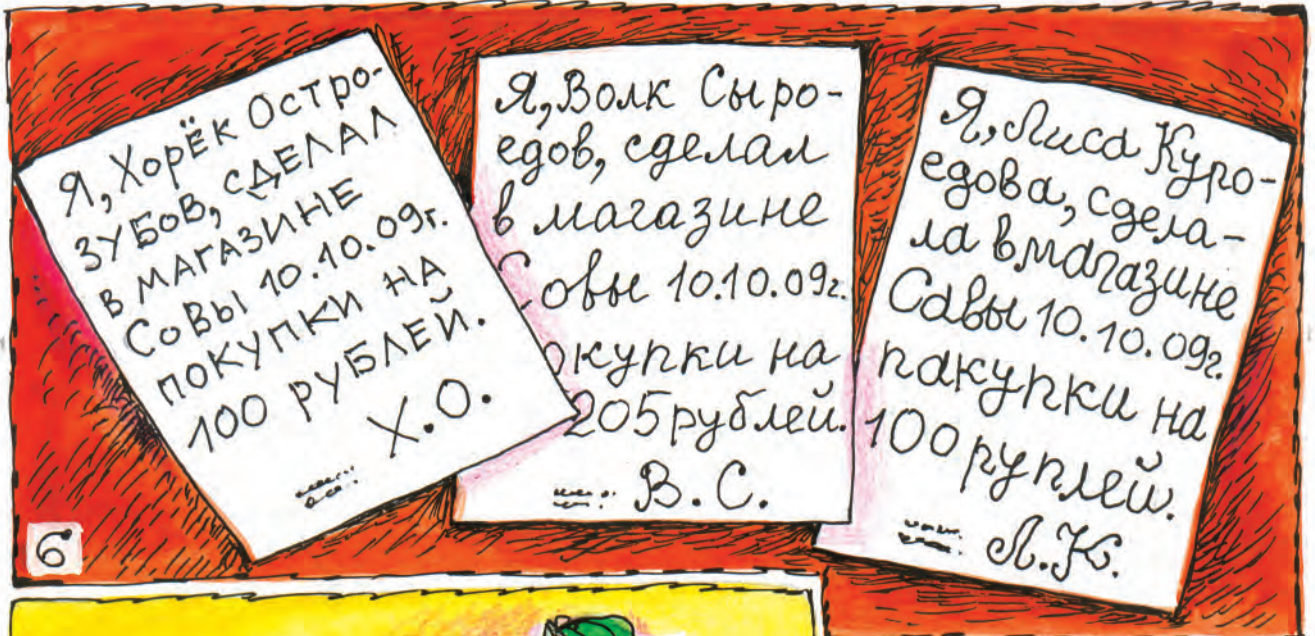 Я, ХОРЁК ОСТРО-
ЗУБОВ, СДЕЛАЛ
В МАГАЗИНЕ
СОВЫ 10.10.09г.
ПОКУПКИ НА
100 РУБЛЕЙ.
Х.О.
Я, Волк Сыро-
едов, сделал
в магазине
Совы 10.10.09г.
окупки на
205 рублей.
В.С.
Я, Лиса Куро-
едова, сдела-
ла в магазине
Савы 10.10.09г.
пакупки на
100 руплей.
Л.К.
6